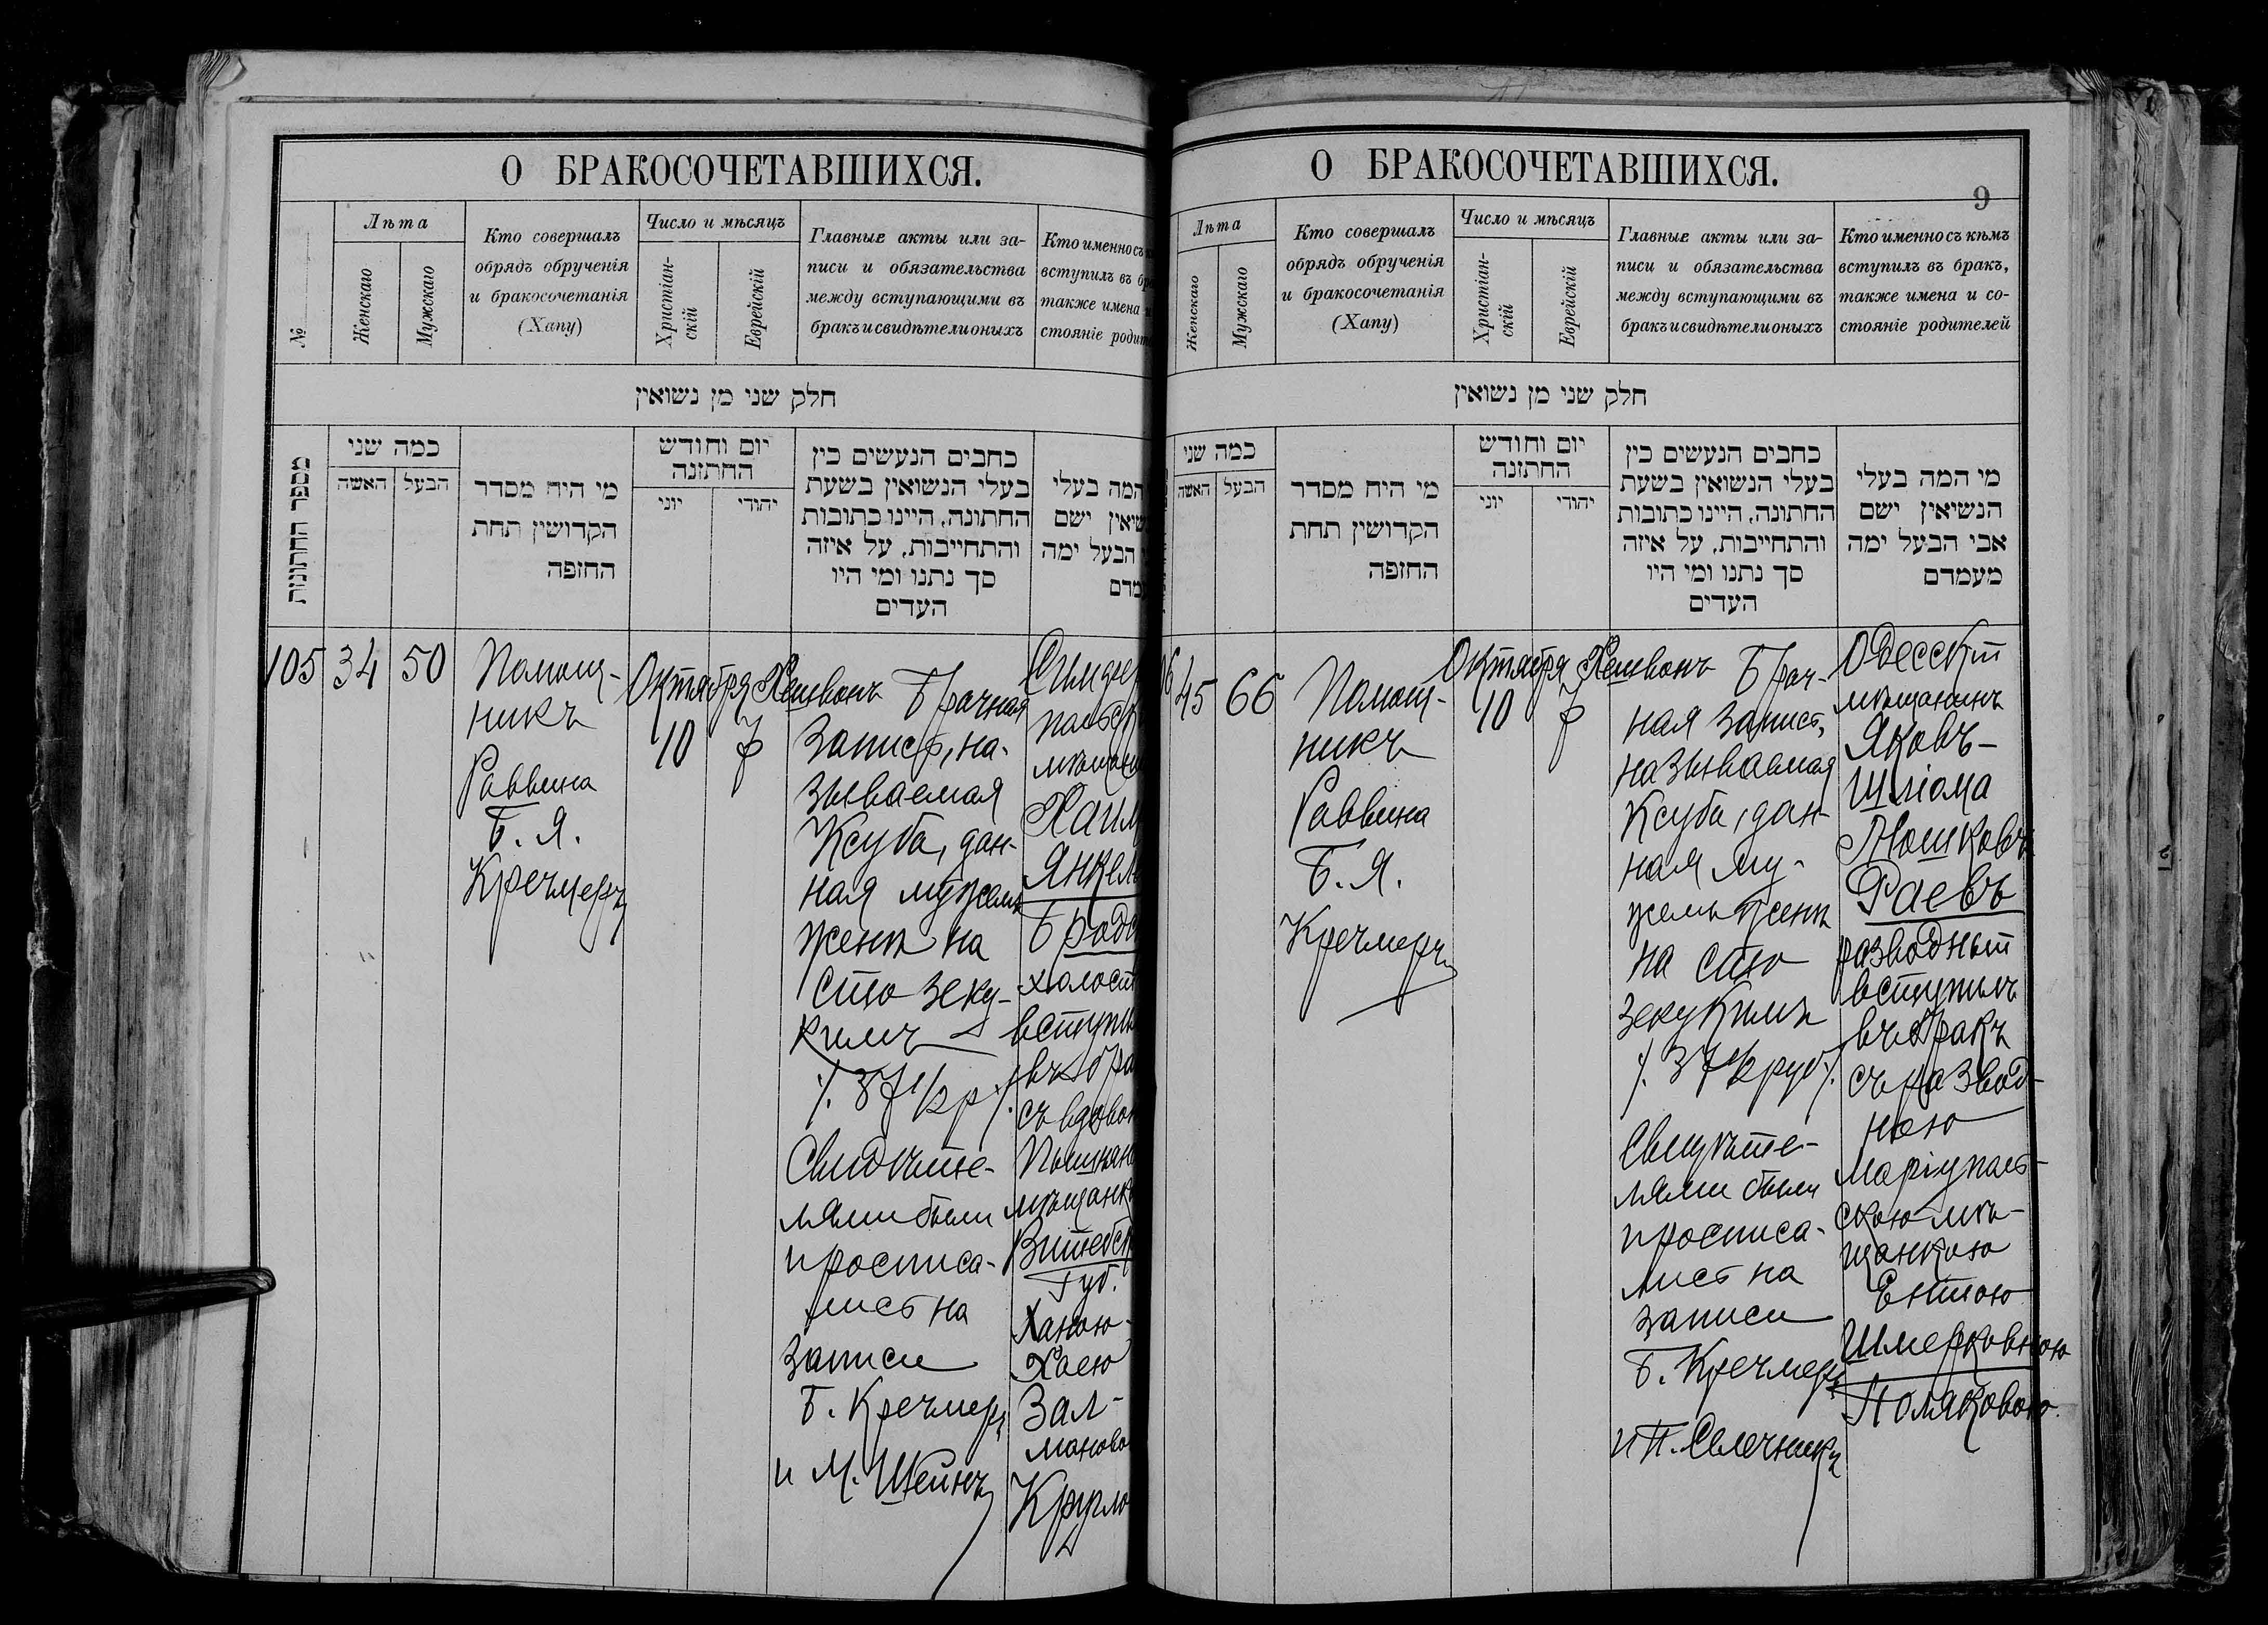 О БРАКОСОЧЕТАВШИХСЯ.
№
Лѣта
Женскаго
Мужскаго
Кто совершалъ
обрядъ обрученія
и бракосочетанія
(Хапу)
Число и мѣсяцъ
Христіан-
скій
Еврейскій
Главные акты или за-
писи и обязательства
между вступающими въ
бракъ и свидѣтели оныхъ
Кто именно съ
вступилъ въ
также имена
стояніе
חלק שני מן נשואין
מספר החתונות
כמה שני
האשה
הבעל
מי היה מסדר
הקדושין תחת
החופה
יום וחודש
החתונה
יוני
יהודי
כתבים הנעשים בין
בעלי הנשואין בשעת
החתונה, היינו כתובות
והתחייבות, על איזה
סך נתנו ומי היו
העדים
המה בעלי
ישם
הבעל ימה
105
34
50
Помощ-
никъ
Раввина
Б. Я.
Кречмеръ
Октября
10
Хешвонъ
7
Брачная
запись, на-
зываемая
Ксуба, дан-
ная мужемъ
женѣ на
сто зеку-
кимъ
/. 37½ р /.
Свидѣте-
лями были
и росписа-
лись на
записи
Б. Кречмеръ
и М. Шейнъ
Хаим
Янкел
холост
вступи
съ вдово
мѣщанк
Витебск
Губ.
Ханою-
Хаею
Зал-
маново
Кругло
О БРАКОСОЧЕТАВШИХСЯ.
9
Лѣта
Женскаго
Мужскаго
Кто совершалъ
обрядъ обрученія
и бракосочетанія
(Хапу)
Число и мѣсяцъ
Христіан-
скій
Еврейскій
Главные акты или за-
писи и обязательства
между вступающими въ
бракъ и свидѣтели оныхъ
Кто именно съ кѣмъ
вступилъ въ бракъ,
также имена и со-
стояніе родителей
חלק שני מן נשואין
כמה שני
האשה
הבעל
מי היה מסדר
הקדושין תחת
החופה
יום וחודש
החתונה
יוני
יהודי
כתבים הנעשים בין
בעלי הנשואין בשעת
החתונה, היינו כתובות
והתחייבות, על איזה
סך נתנו ומי היו
העדים
מי המה בעלי
הנשיאין ישם
אבי הבעל ימה
מעמדם
6
45
66
Помощ-
никъ
Раввина
Б. Я.
Кречмеръ
Октября
10
Хешвонъ
7
Брач-
ная запись,
называемая
Ксуба, дан-
ная му-
жемъ женѣ
на сто
зекукимъ
/. 37½ руб /.
Свидѣте-
лями были
и росписа-
лись на
записи
Б. Кречмеръ
и П.
Одесскій
мѣщанинъ
Яковъ-
Шліома
Мошковъ
Раевъ
разводный
вступилъ
въ бракъ
съ развод-
ною
маріуполь-
скою мѣ-
щанкою
Ентою
Шмерковною
Поляковою